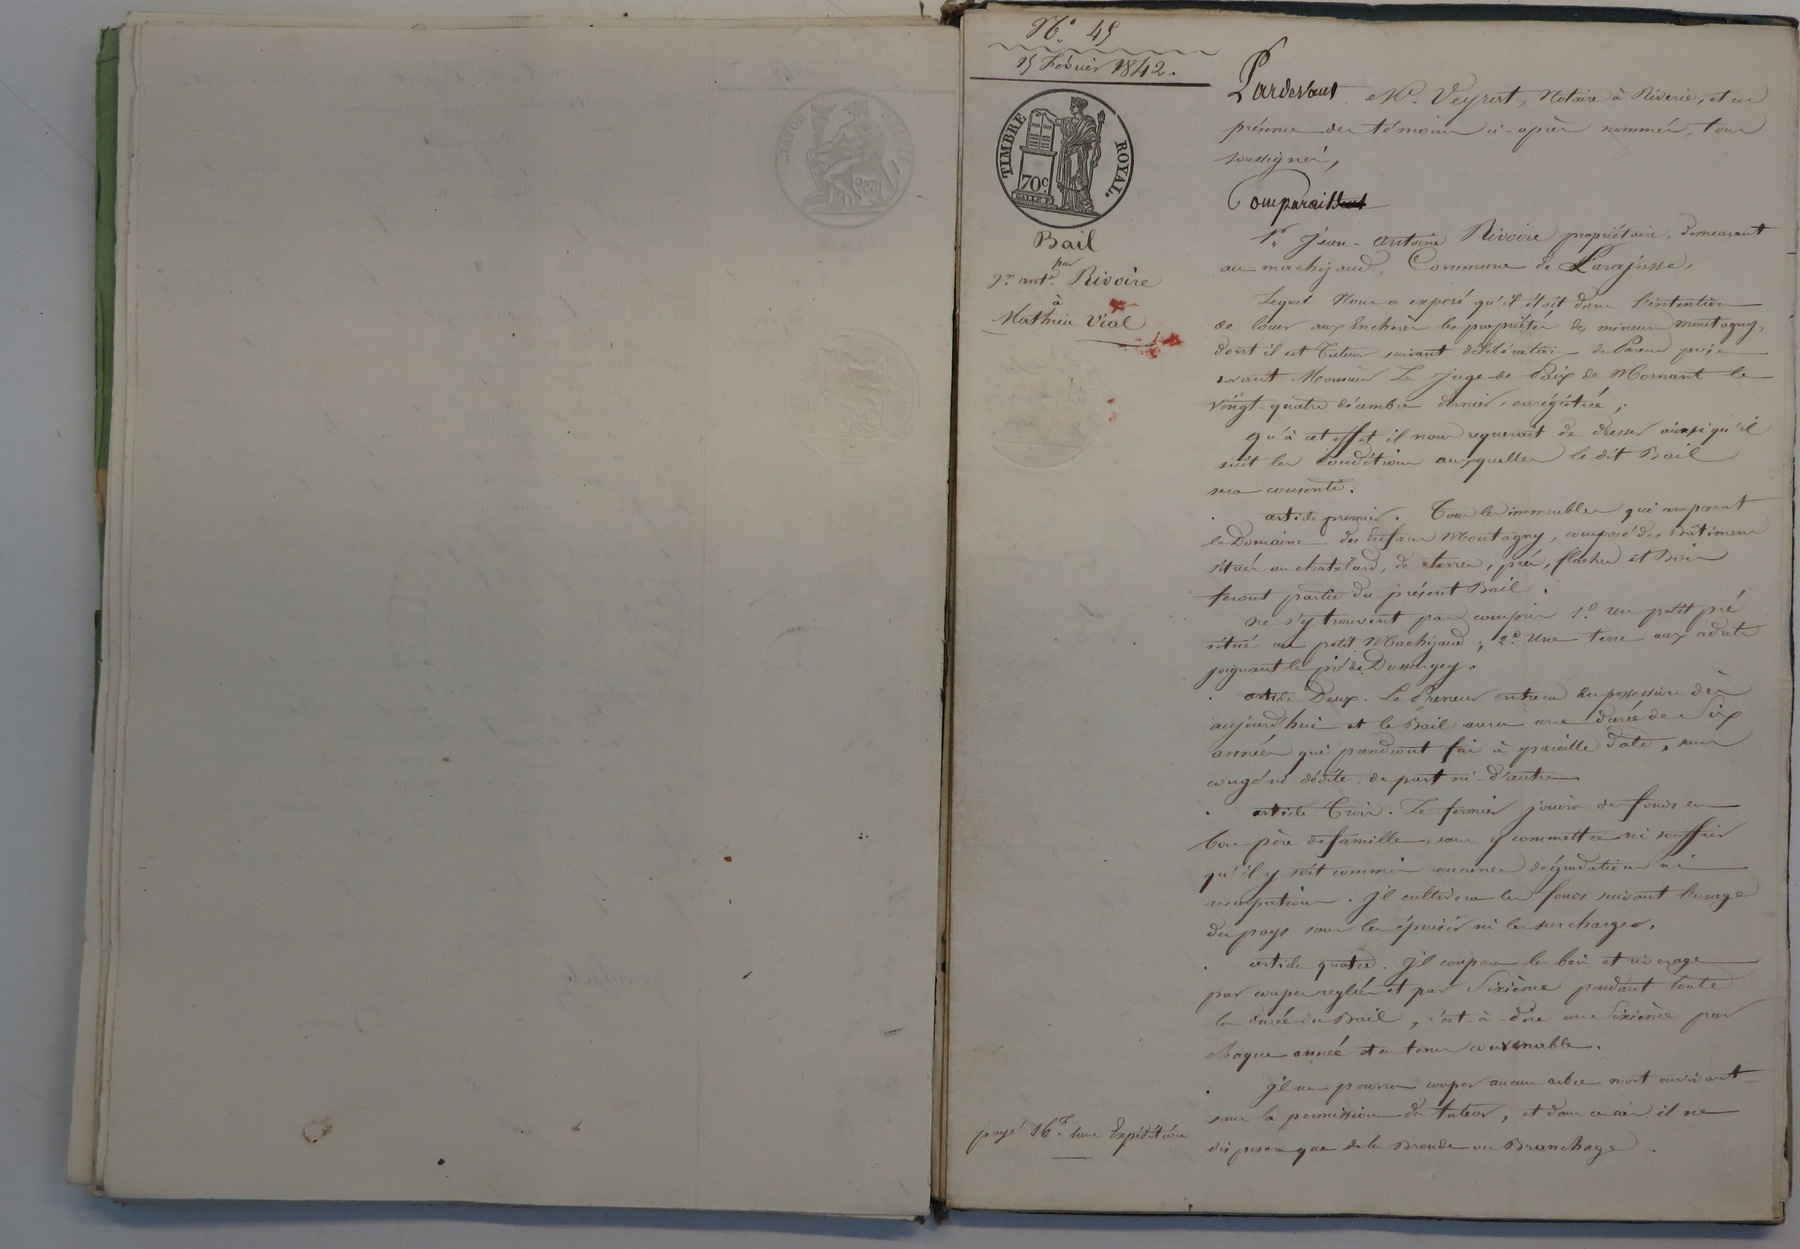 N° 45
15 Février 1842.
TIMBRE ROYAL.
70c
Bail
par
Jn. ante. Rivoire
à
Mathieu Vial
payé 16f. sans Expédition
Pardevant Me. Veyret, Notaire à Riverie, et en
présence des témoins ci-après nommés, tous
soussignés,
Comparait
1°. Jean-Antoine Rivoire propriétaire, demeurant
au machizaud, Commune de Larajasse,
Lequel Nous a exposé qu'il était dans l'intention
de louer aux Enchères les propriétés des mineurs Montagny,
dont il est Tuteur suivant délibération de Parens prise
devant Monsieur Le Juge de Paix de Mornant le
vingt-quatre décembre dernier, enregistrée ;
qu'à cet effet il nous requerait de dresser ainsi qu'il
suit les Conditions auxquelles le dit Bail
sera consenti.
article premier. Tous les immeubles qui composent
le Domaine des Enfans Montagny, composé des Bâtimens
situés au chatelard, de terres, prés, flaches et Bois
feront partie du présent Bail.
Ne s'y trouvent pas compris 1°. Un petit pré
situé au petit Machizaud ; 2°. Une terre aux adrets
joignant le pré de
article Deux. Le Preneur entrera En possession dès
aujourd'hui et le Bail aura une durée de Six
années qui prendront fin à pareille date, sans
congé ni dédite, de part ni d'autre.
article Trois. Le fermier jouira des fonds en
bon père de famille, sans y commettre ni souffrir
qu'il y soit commis aucunes dégradations ni
usurpations. Il cultivera les fonds suivant l'usage
du pays sans les épuiser ni les surcharger.
article quatre. Il coupera les bois et riverages
par coupes reglées et par Sixième pendant toute
la durée du Bail, c'est-à-dire un Sixième par
chaque année et en tems convenable.
Il ne pourra couper aucun arbre mort ou vivant
sans la permission du tuteur, et dans ce cas il ne
disposera que de la Bronde ou Branchage.